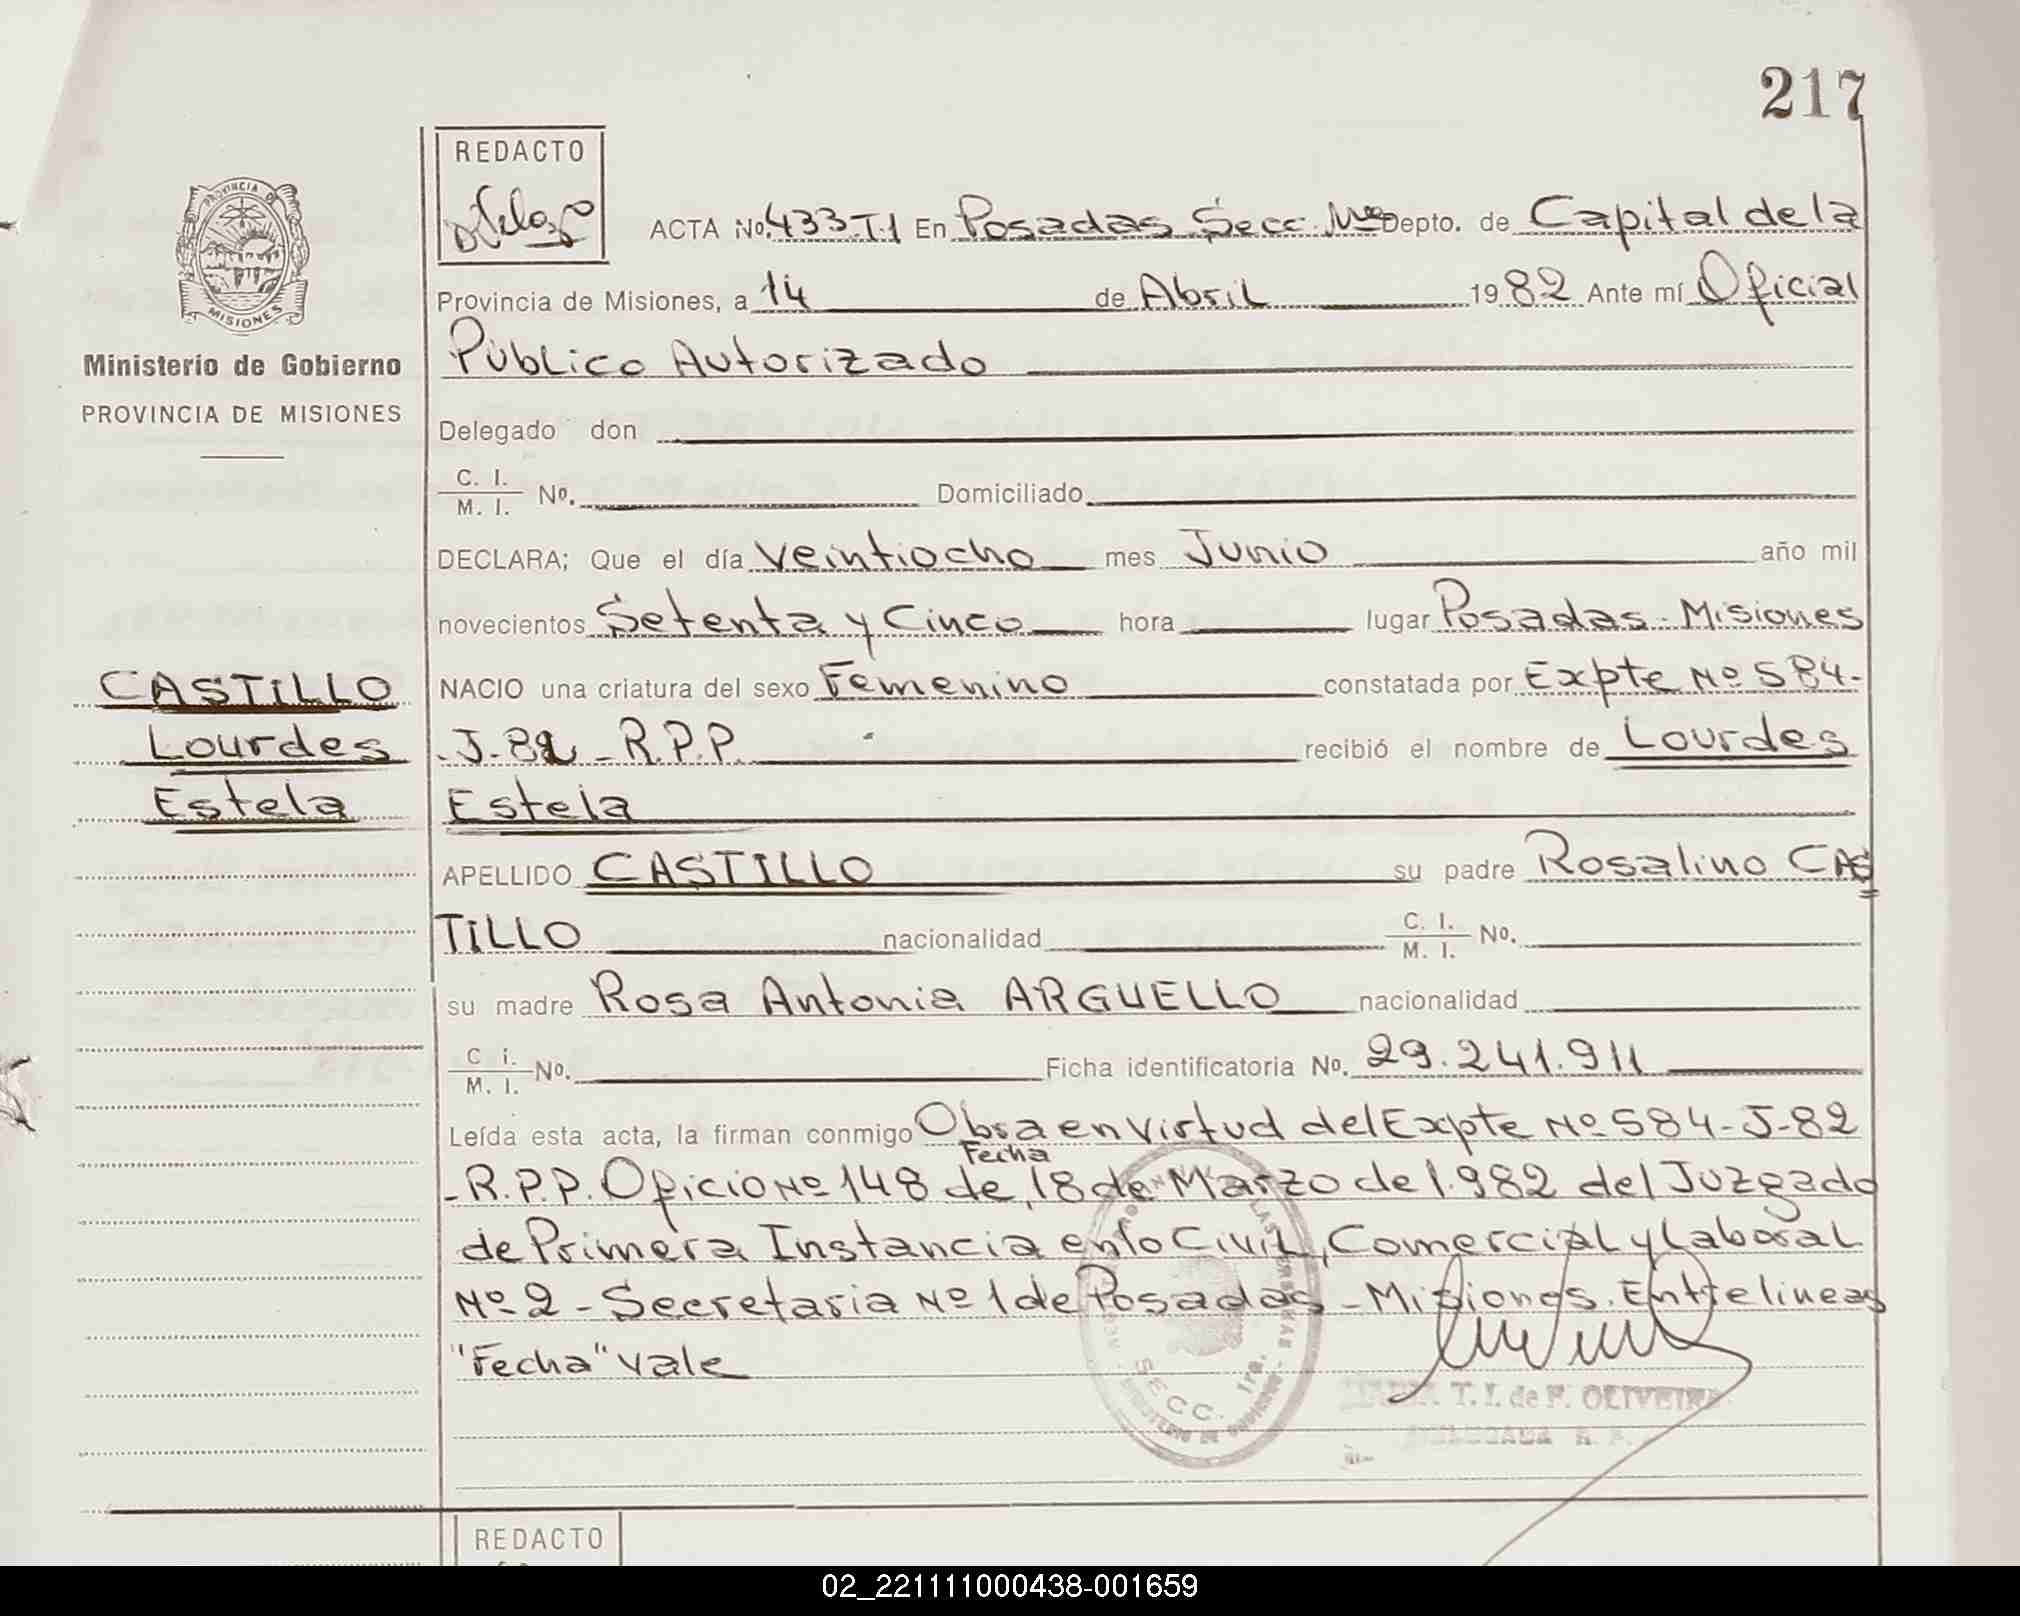 217
REDACTO
PROVINCIA DE
MISIONES
Ministerio de Gobierno
PROVINCIA DE MISIONES
ACTA No. 433-T.1 En Posadas Secc. Depto. de Capital de la
Provincia de Misiones, a 14 de Abril 1982 Ante mí Oficial
Público Autorizado
Delegado don
C. I.
M. I. No. Domiciliado
DECLARA; Que el día veintiocho mes Junio año mil
novecientos Setenta y Cinco hora lugar Posadas - Misiones
CASTILLO
Lourdes
Estela
NACIO una criatura del sexo Femenino constatada por Expte Nº 584-
-J-82-R.P.P. recibió el nombre de Lourdes
Estela
APELLIDO CASTILLO su padre Rosalino CAS
TILLO nacionalidad C. I. M. I. No.
su madre Rosa Antonia ARGUELLO nacionalidad
C. I. M. I. No. Ficha identificatoria No. 29.241.911
Leída esta acta, la firman conmigo Obra en virtud del Expte Nº 584-J-82
Fecha
-R.P.P. Oficio Nº 148 de, 18 de Marzo de 1.982 del Juzgado
de Primera Instancia en lo Civil, Comercial y Laboral
Nº 2 - Secretaria Nº 1 de Posadas - Misiones. Entre lineas
"Fecha" vale
SECC. 1ra.
T. I. de F. OLIVEIRA
DELEGADA R. P.
REDACTO
02_221111000438-001659